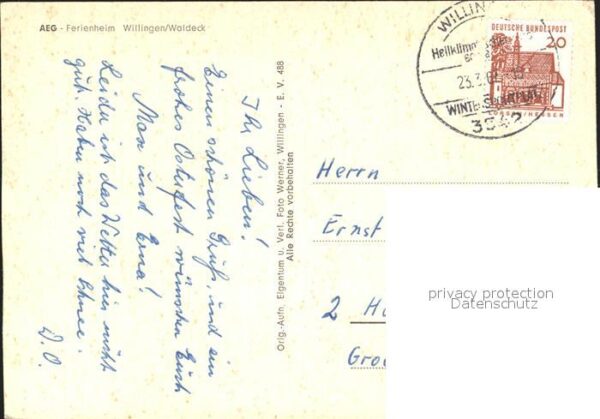 AEG - Ferienheim Willingen/Waldeck
Ihr Lieben!
Einen schönen Gruß, und ein
frohes Osterfest wünschen Euch
Max und Erna!
Leider ist das Wetter hier nicht
gut. Haben noch viel Schnee.
D. O.
Orig.-Aufn. Eigentum u. Verl. Foto Werner, Willingen - E. V. 488
Alle Rechte vorbehalten
WILLIN
Heilklima
23.3.
WINTERSPORTPLATZ
3542
DEUTSCHE BUNDESPOST
20
LORSCH/HESSEN
Herrn
Ernst
2 H
Gro
privacy protection
Datenschutz